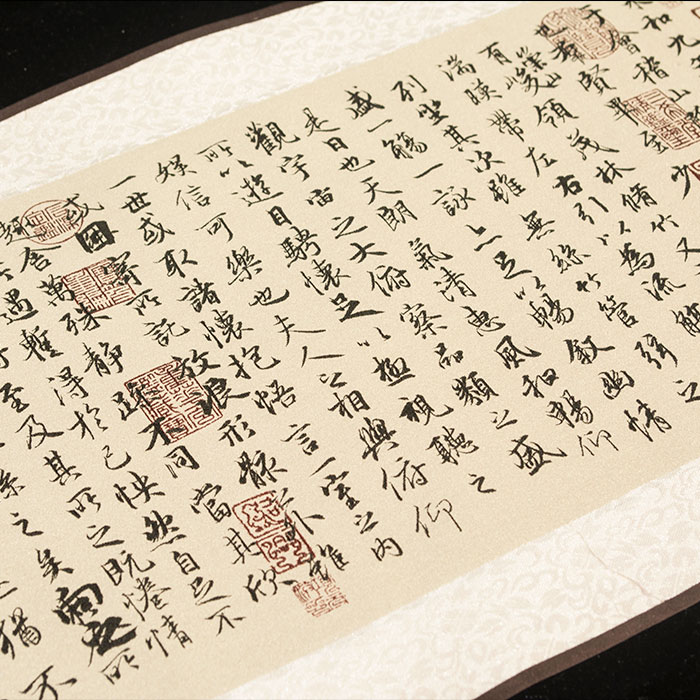 和九
于會稽山
也羣賢畢至少
有崇山峻領茂林脩竹又
湍暎帶左右引以為流
列坐其次雖無絲竹管弦之
盛一觴一詠亦足以暢敘幽情
是日也天朗氣清惠風和暢仰
觀宇宙之大俯察品類之盛
所以遊目騁懷足以極視聽之
娛信可樂也夫人之相與俯仰
一世或取諸懷抱悟言一室之內
或因寄所託放浪形骸之外雖
趣舍萬殊靜躁不同當其欣
所遇蹔得於己怏然自足不
至及其所之既惓情
係之矣向之所
猶不